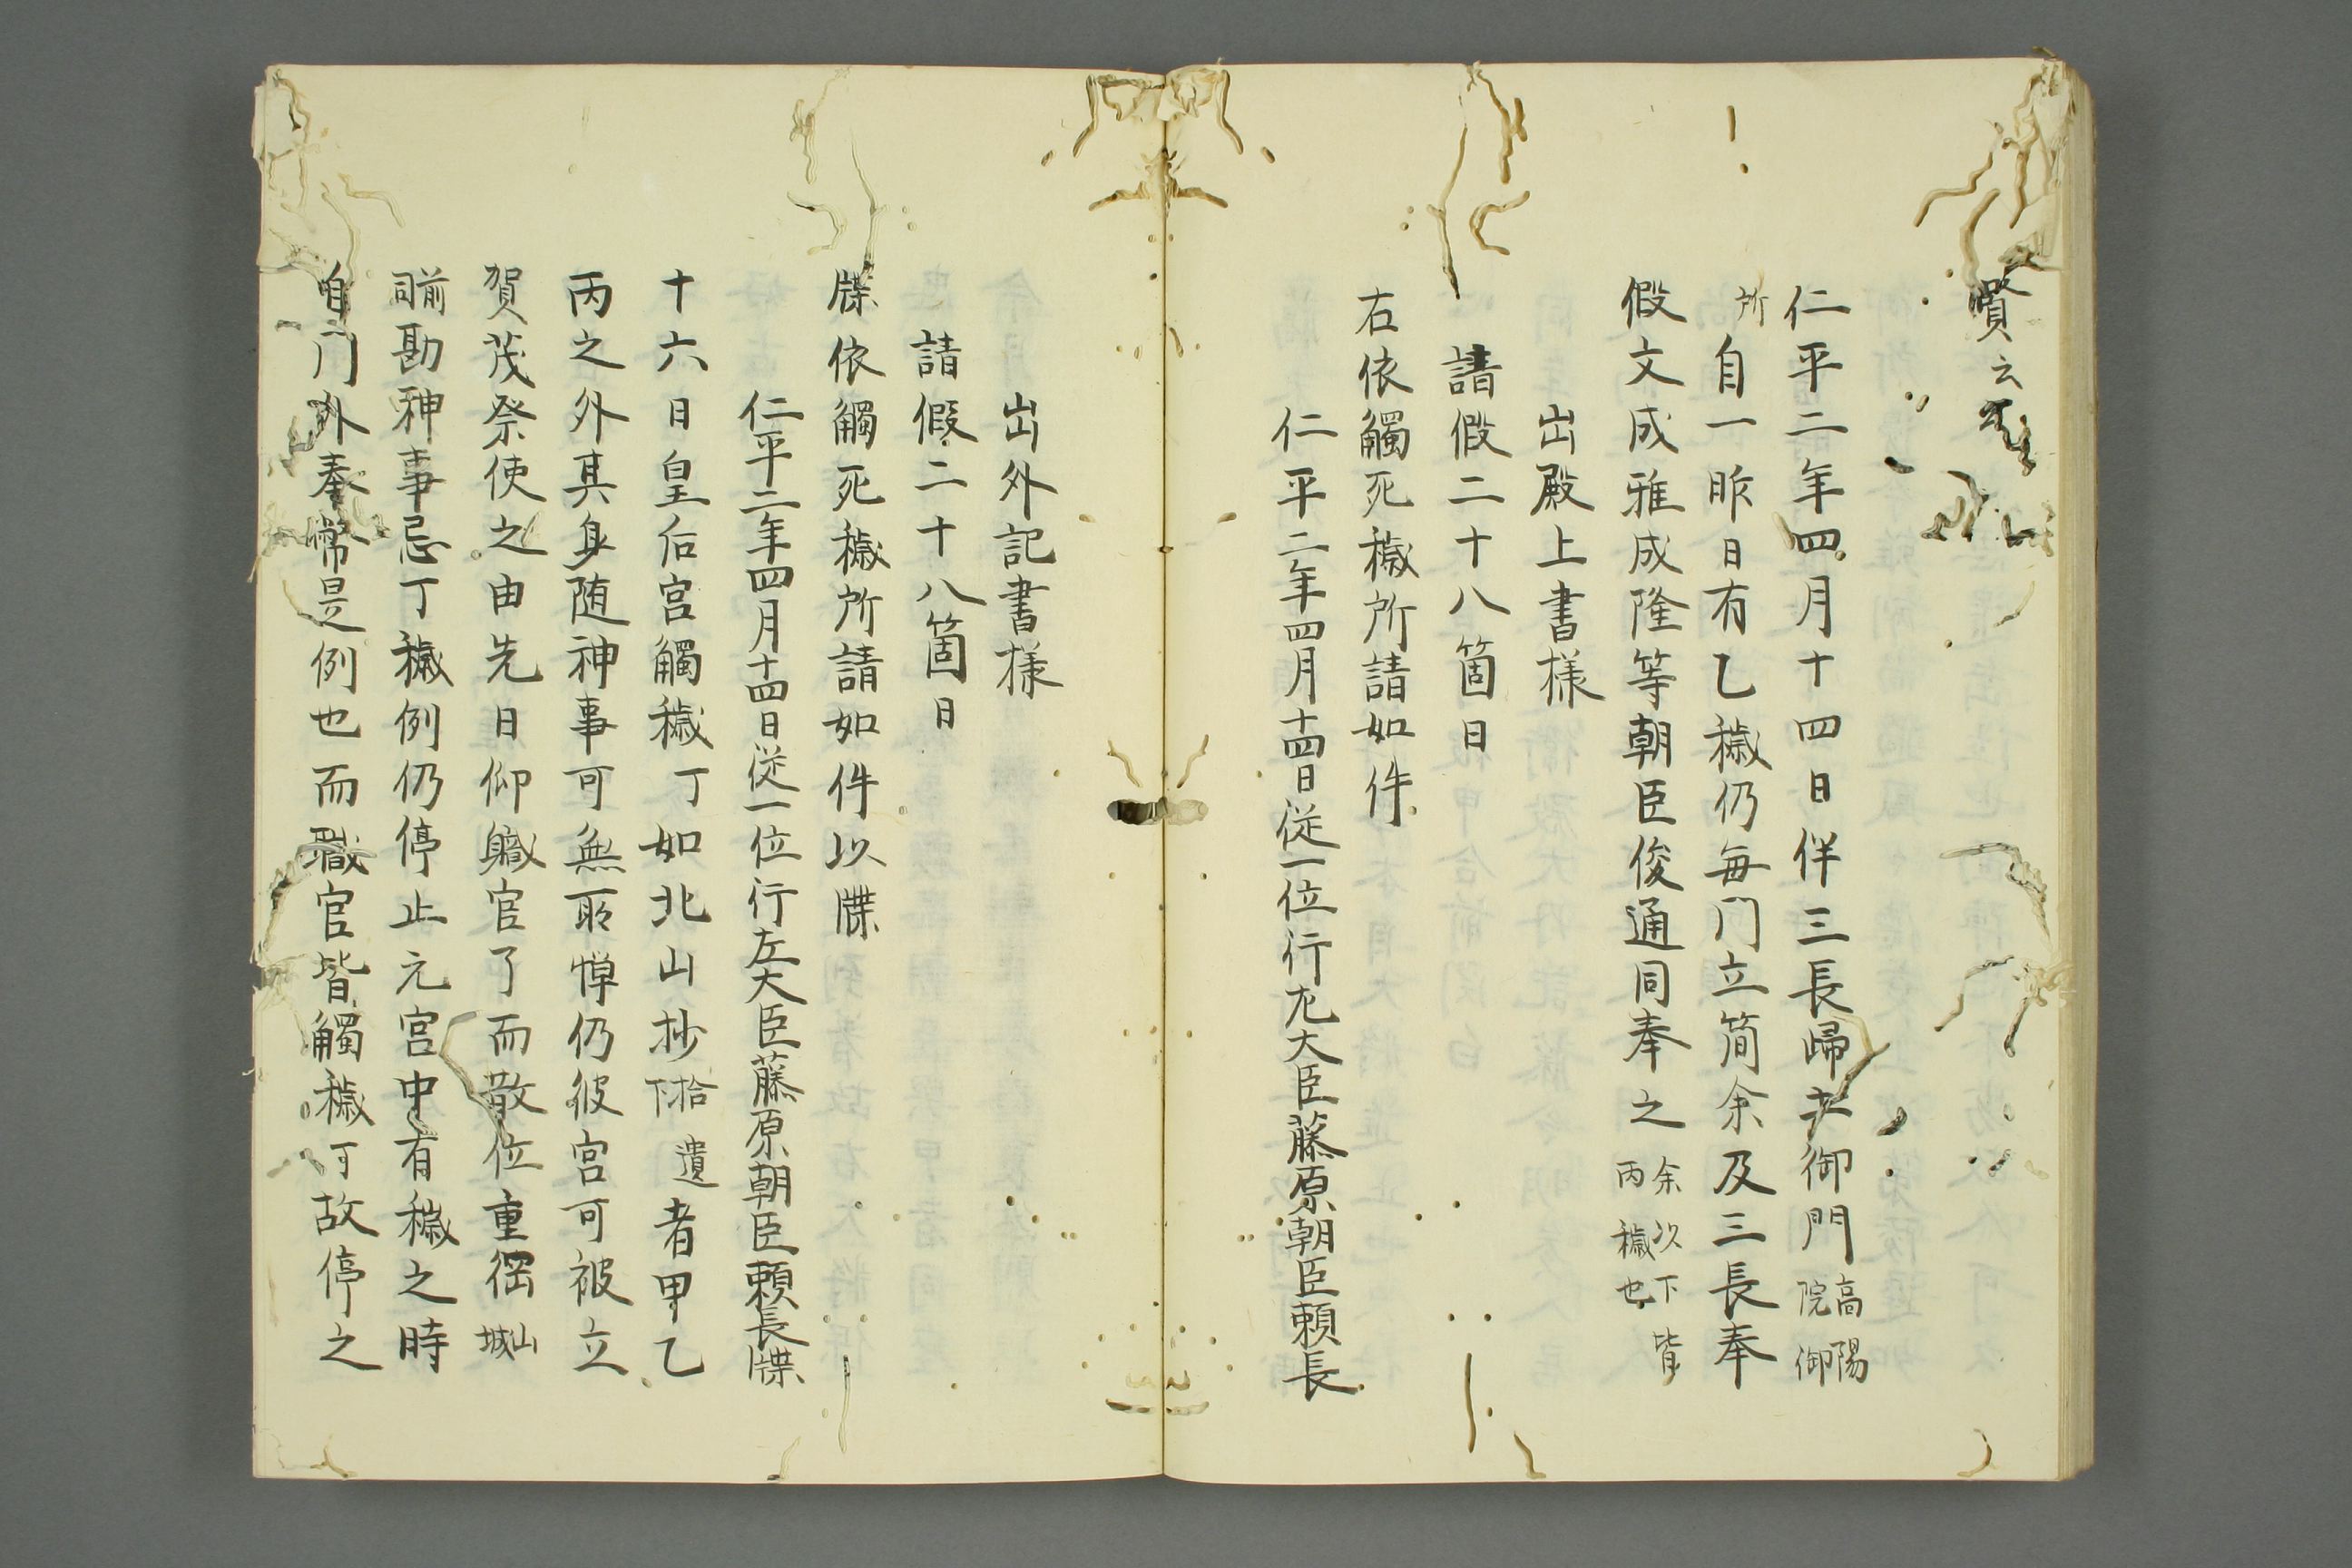 賢云
仁平二年四月十四日伴三長歸土御門高陽院御
所自一昨日有乙穢仍毎門立簡余及三長奉
假文成雅成隆等朝臣俊通同奉之余以下皆丙穢也
出殿上書様
請假二十八箇日
右依觸死穢所請如件
仁平二年四月十四日従一位行左大臣藤原朝臣頼長
出外記書様
請假二十八箇日
牒依觸死穢所請如件以牒
仁平二年四月十四日従一位行左大臣藤原朝臣頼長牒
十六日皇后宮觸穢丁如北山抄拾遺下者甲乙
丙之外其身随神事可無所憚仍彼宮可被立
賀茂祭使之由先日仰職官了而散位重網山城
前司勘神事忌丁穢例仍停止元宮中有穢之時
自門外奉幣是例也而職官皆觸穢何故停之